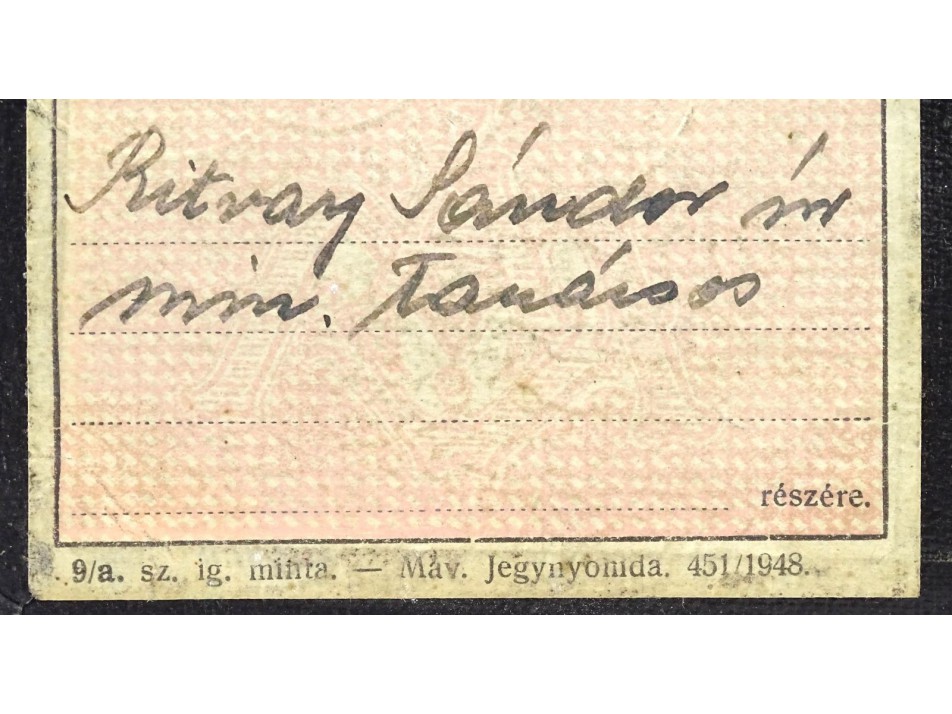 Ritvay Sándor úr
min. Tanácsos
részére.
9/a. sz. ig. minta. — Máv. Jegynyomda. 451/1948.